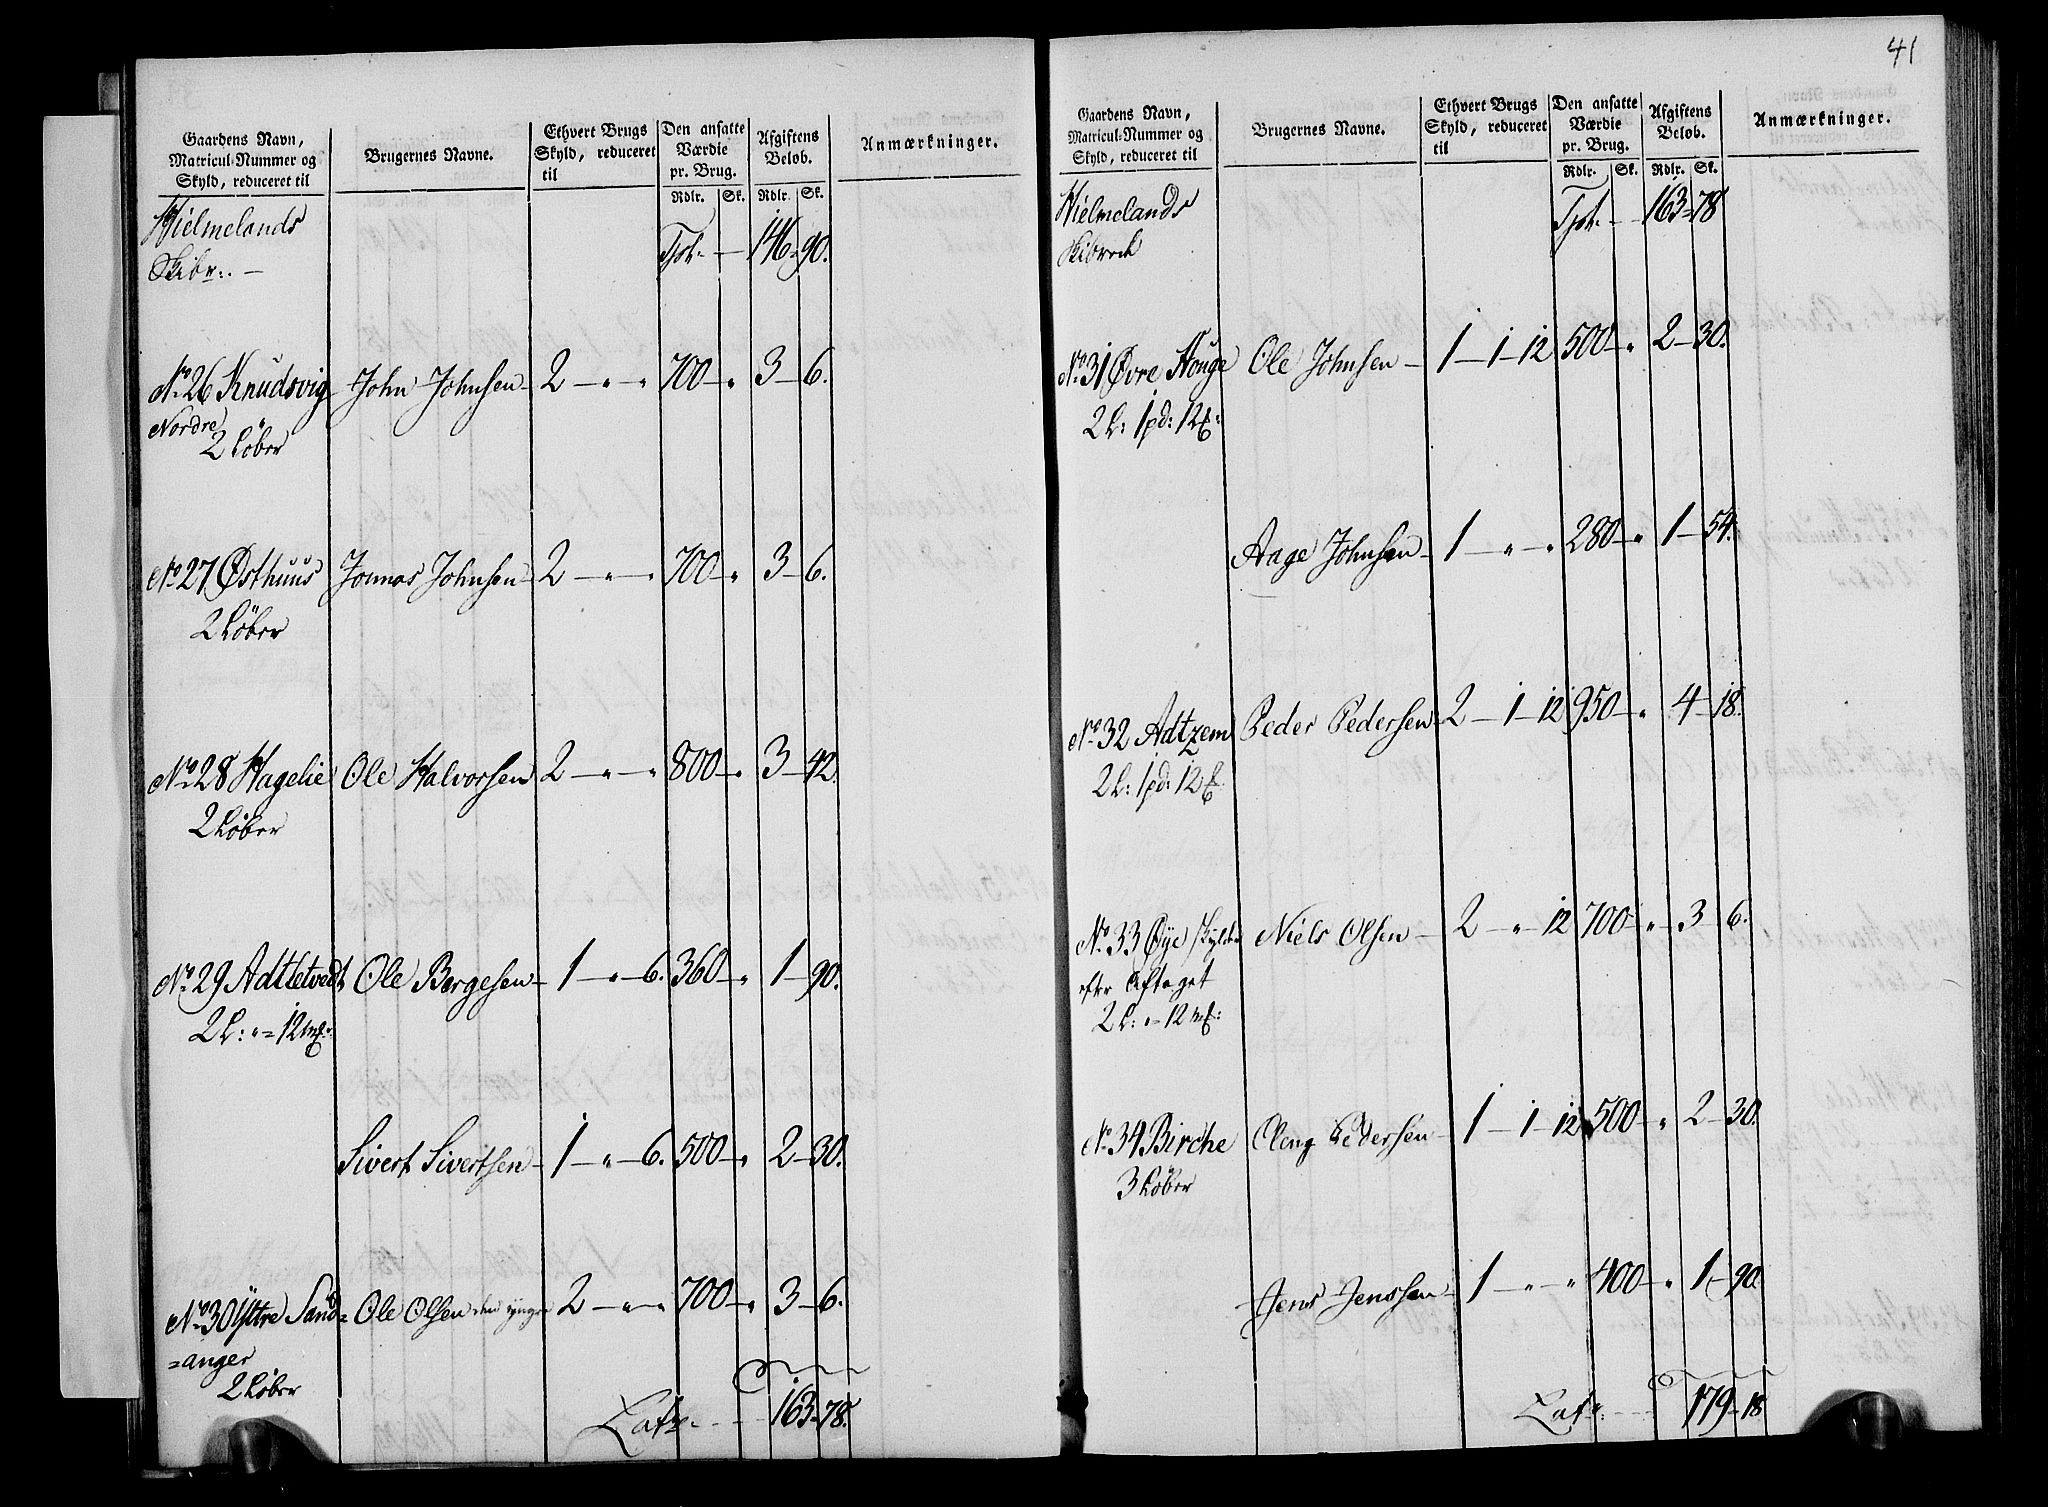 Gaardens Navn, Matricul-Nummer og Skyld, reduceret til | Brugernes Navne. | Ethvert Brugs Skyld, reduceret til | Den ansatte Værdie pr. Brug. Rdlr. Sk. | Afgiftens Beløb. Rdlr. Sk. | Anmærkninger.
Hielmelands Tpt. — 146 = 90.
Skibr: . —
No 26 Knudsvig John Johnsen — 2 — " — " 700 — " 3 — 6.
Nordre
2 Löber
No 27 Østhuus Jonnas Johnsen — 2 — " — " 700 — " 3 — 6.
2 Löber
No 28 Hagelie Ole Halvorsen 2 — " — " 800 — " 3 — 42.
2 Löber
No 29 Adtletvedt Ole Børgesen — 1 — " — 6. 360 — " 1 — 90.
2 L: " = 12 mk:
Sivert Sivertsen — 1 — " — 6. 500 — " 2 — 30.
No 30 Ÿttre Sand= Ole Olsen den yngre 2 — " — " 700 — " 3 — 6.
=anger
2 Löber
Latr. - - - 163 = 78.
41
Gaardens Navn, Matricul-Nummer og Skyld, reduceret til | Brugernes Navne. | Ethvert Brugs Skyld, reduceret til | Den ansatte Værdie pr. Brug. Rdlr. Sk. | Afgiftens Beløb. Rdlr. Sk. | Anmærkninger.
Hielmelands Tpt. — 163 = 78
Skibrede
No 31 Øvre Houge Ole Johnsen — 1 — 1 — 12 500 — " 2 — 30.
2 L: 1 pd: 12 mk:
Aage Johnsen — 1 — " — " 280 — " 1 — 54.
No 32 Adtzem Peder Pedersen — 2 — 1 — 12 950 — " 4 — 18.
2 L: 1 pd: 12 mk
No 33 Øye skylder Niels Olsen — 2 — " — 12 700 — " 3 — 6.
efter Aftaget
2 L: " = 12 mk:
No 34 Birche Pedersen — 1 — 1 — 12 500 — " 2 — 30.
3 Löber
Jens Jenssen — 1 — " — " 400 — " 1 — 90.
Latr. - - - 179 = 18